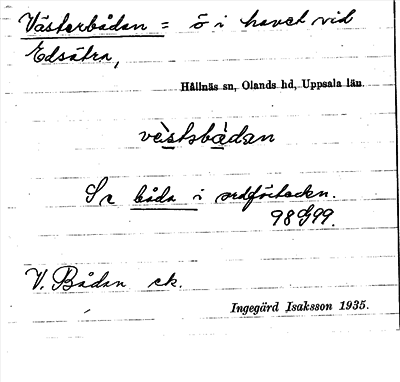 Västerbådan = ö i havet vid
Edsätra,
Hållnäs sn, Olands hd, Uppsala län.
vèstsbådan
Se båda i ordförteckn.
98 G99.
V. Bådan ek.
Ingegärd Isaksson 1935.